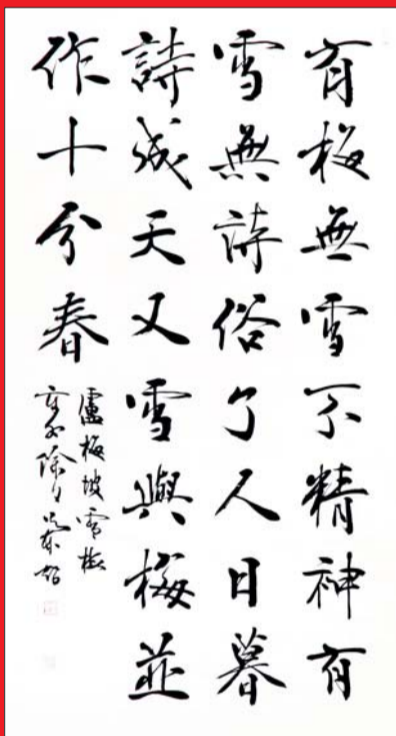 有梅無雪不精神有
雪無詩俗了人日暮
詩成天又雪與梅並
作十分春
盧梅坡雪梅